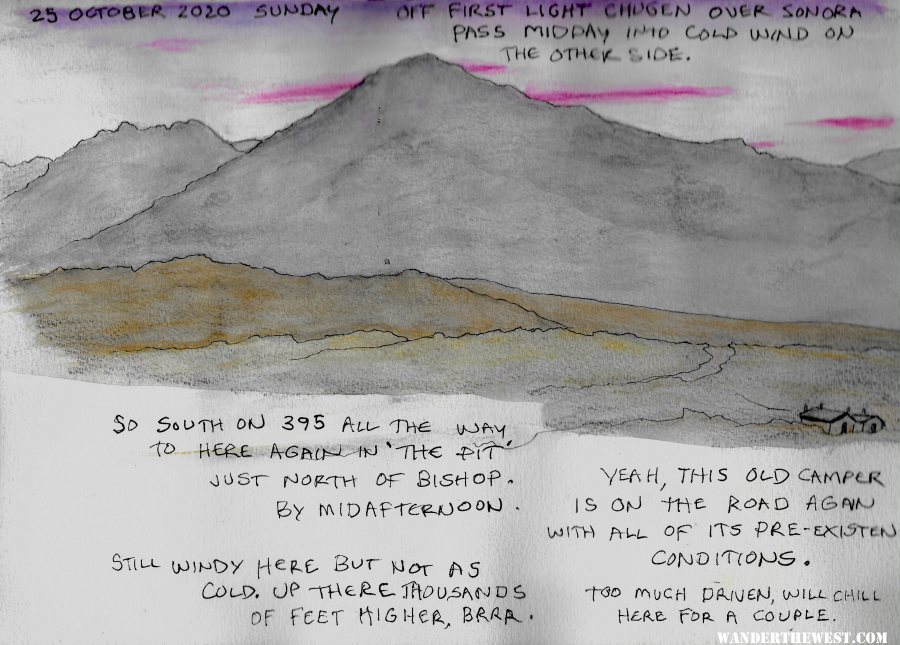 25 OCTOBER 2020 SUNDAY OFF FIRST LIGHT CHUGEN OVER SONORA
PASS MIDDAY INTO COLD WIND ON
THE OTHER SIDE.
SO SOUTH ON 395 ALL THE WAY
TO HERE AGAIN IN 'THE PIT'
JUST NORTH OF BISHOP.
BY MIDAFTERNOON.
STILL WINDY HERE BUT NOT AS
COLD. UP THERE THOUSANDS
OF FEET HIGHER, BRRR.
YEAH, THIS OLD CAMPER
IS ON THE ROAD AGAIN
WITH ALL OF ITS PRE-EXISTEN
CONDITIONS.
TOO MUCH DRIVEN, WILL CHILL
HERE FOR A COUPLE.
WANDERTHEWEST.COM